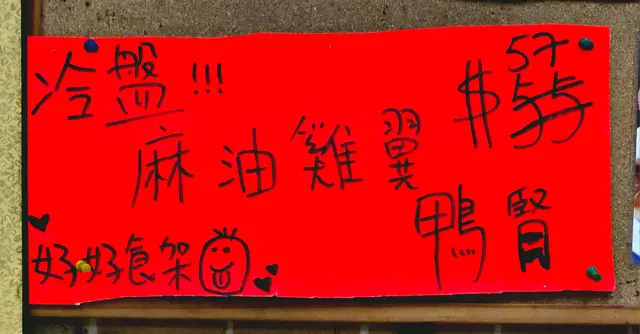 冷盤!!!
$57
麻油雞翼
鴨腎
好好食架